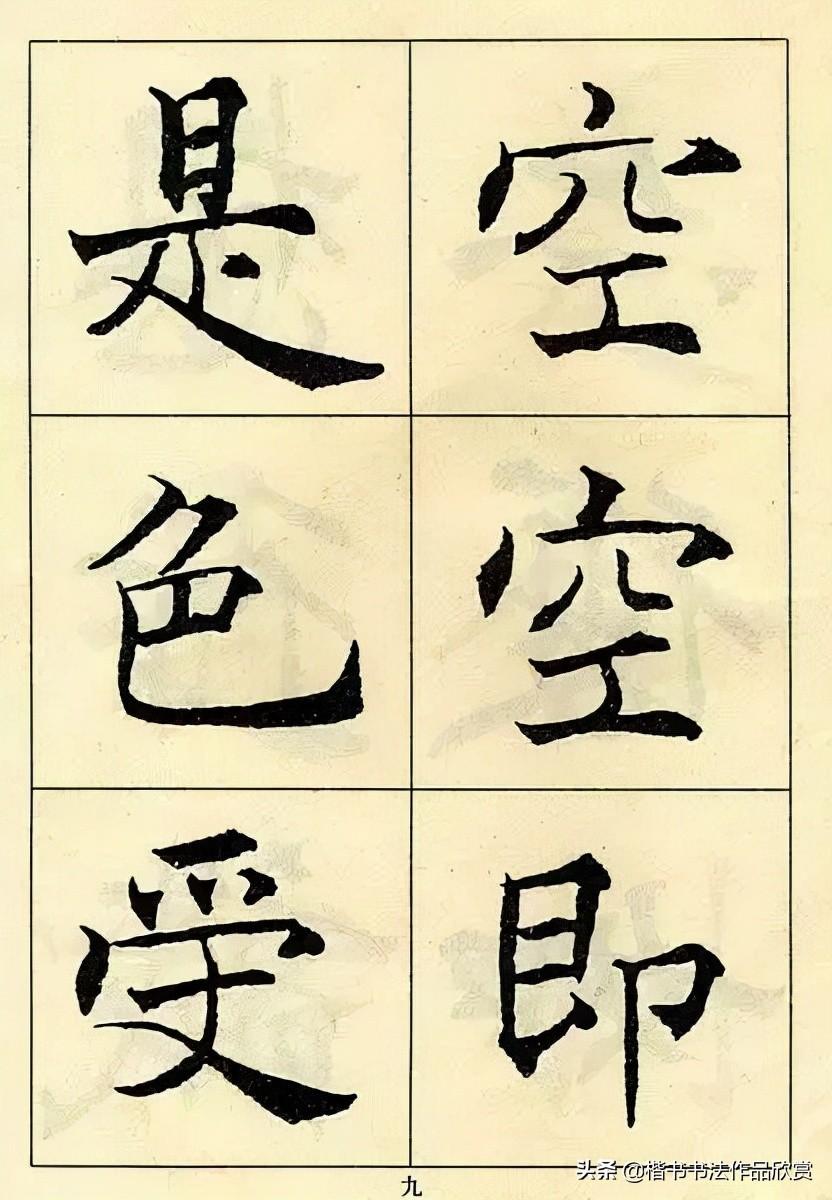 空空即
是色受
九
头条 @楷书书法作品欣赏